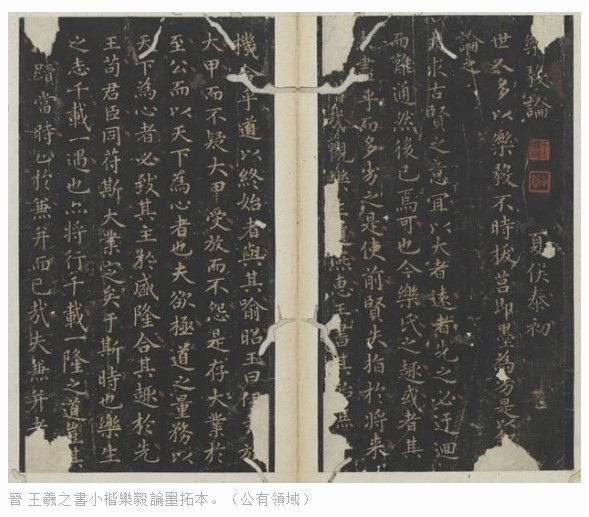 樂毅論 夏侯泰初
世人多以樂毅不時拔莒即墨為劣是以
論之
求古賢之意宜以大者遠者先之必迂迴
而難通然後已焉可也今樂氏之趣或者其
書乎而多劣之是使前賢失指於將來
惜哉觀樂遺燕惠書其殆
機合乎道以終始者與其喻昭王曰伊放
大甲而不疑大甲受放而不怨是存大業於
至公而以天下為心者也夫欲極道之量務以
天下為心者必致其主於盛隆合其趣於先
王苟君臣同符斯大業定矣于斯時也樂生
之志千載一遇也亦將行千載一隆之道豈其
蹟當時止於兼并而已哉夫兼并者
晉 王羲之書小楷樂毅論墨拓本。（公有領域）